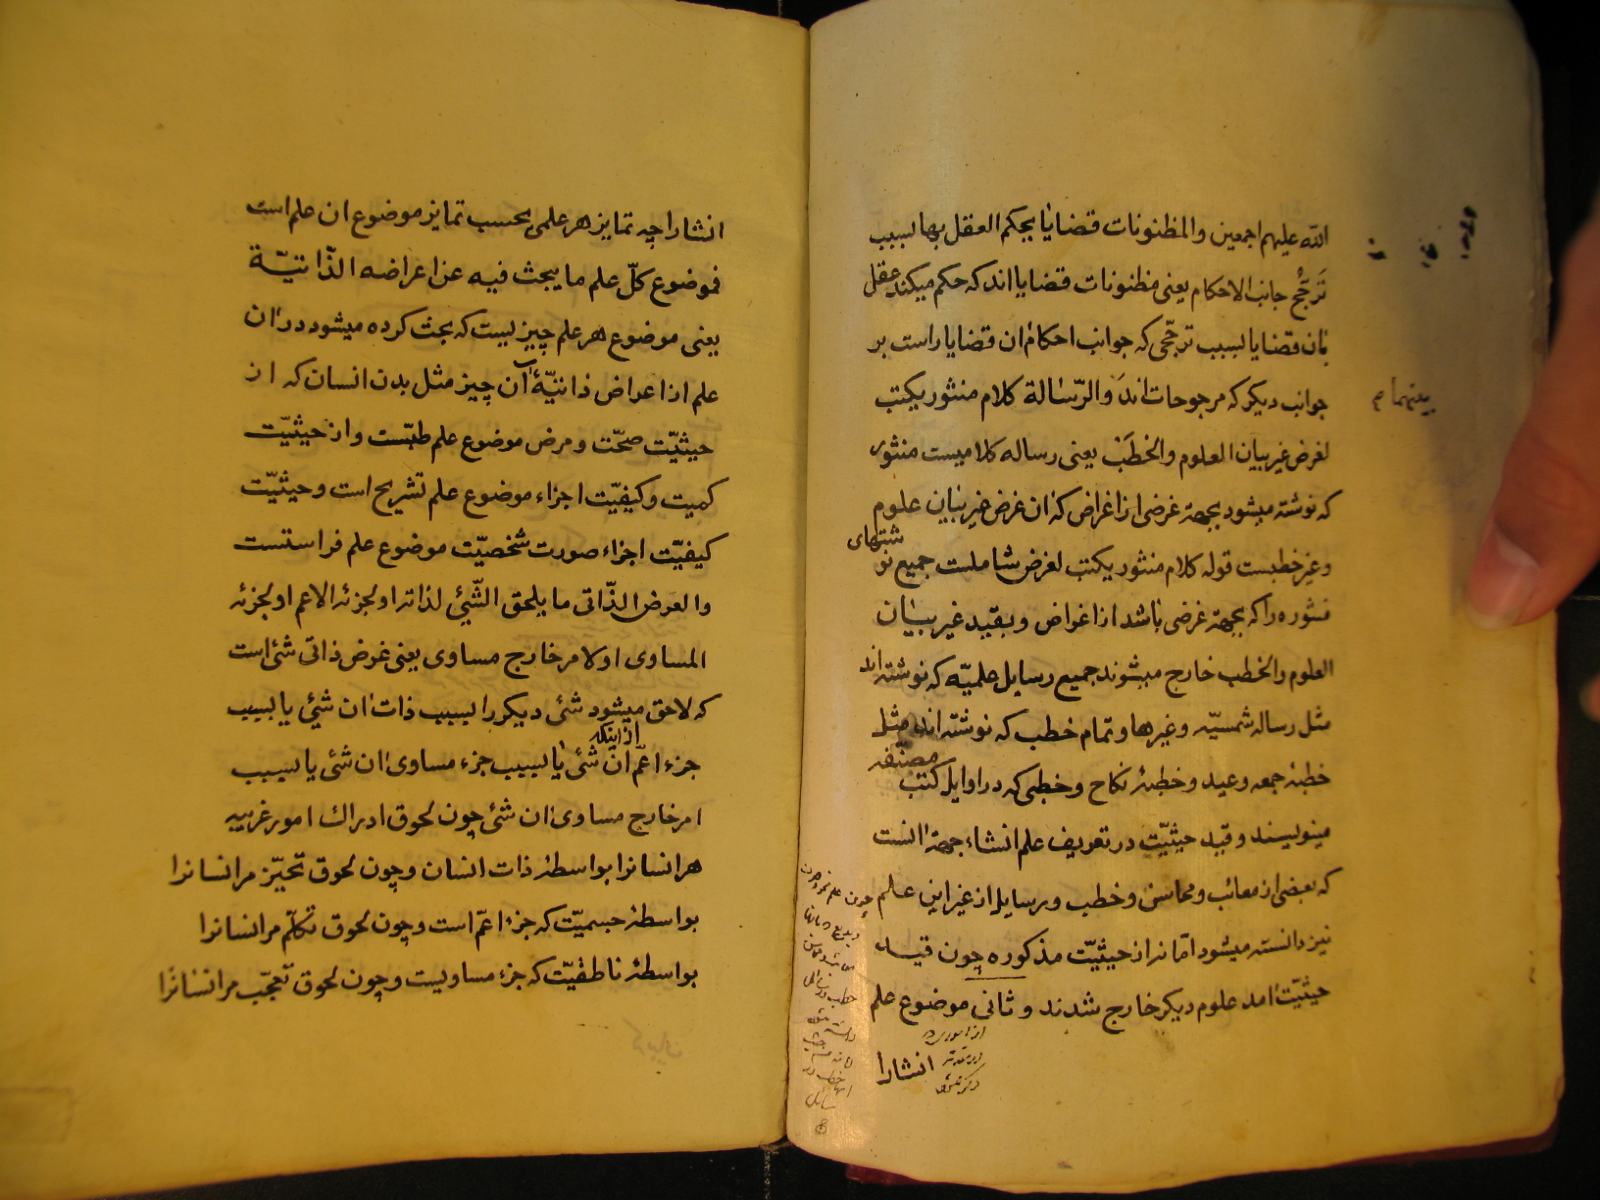 الله علیهم اجمعین والمظنونات قضایا یحکم العقل بها بسبب
تَرَجُّح جانب الاحکام یعنی مظنونات قضایا اند که حکم میکند عقل
بان قضایا بسبب ترجّحی که جوانب احکام ان قضایا راست بر
جوانب دیکر که مرجوحات اند والرّسالة کلام منثور یکتب
لغرض غیر بیان العلوم والخطَب یعنی رساله کلامیست منثور
که نوشته میشود بجهة غرضی از اغراض که ان غرض غیر بیان علوم
وغیر خطبست قوله کلام منثور یکتب لغرض شاملست جمیع نو شتهای
منثوره را که بجهة غرضی باشد از اغراض و بقید غیر بیان
العلوم والخطب خارج میشوند جمیع رسایل علمیّه که نوشته اند
مثل رساله شمسیّه وغیرها وتمام خطب که نوشته اند مثل
خطبهٔ جمعه وعید وخطبهٔ نکاح وخطبی که در اوایل کتب مصنّفه
مینویسند وقید حیثیّت در تعریف علم انشاء جهة انست
که بعضی از معائب ومحاسن وخطب ورسایل از غیر این علم
نیز دانسته میشود امّا نه از حیثیّت مذکوره چون قید
حیثیّت امد علوم دیکر خارج شدند و ثانی موضوع علم
انشارا
بینهما م
انشارا چه تمایز هر علمی بحسب تمایز موضوع ان علم است
فموضوع کلّ علم ما یبحث فیه عن اعراضه الذّاتیّة
یعنی موضوع هر علم چیزیست که بحث کرده میشود در ان
علم از اعراض ذاتیّهٔ ان چیز مثل بدن انسان که از
حیثیّت صحّت ومرض موضوع علم طبّست واز حیثیّت
کمیت وکیفیّت اجزاء موضوع علم تشریح است وحیثیّت
کیفیّت اجزاء صورت شخصیّت موضوع علم فراستست
والعرض الذّاتی ما یلحق الشّیئ لذاته اولجزئه الاعم اولجزئه
المساوی اولامر خارج مساوی یعنی عرض ذاتی شئ است
که لاحق میشود شئ دیکر را بسبب ذات ان شیئ یا بسبب
جزء اعّم ان شئ از اینکه یا بسبب جزء مساوی ان شئ یا بسبب
امر خارج مساوی ان شئ چون لحوق ادراك امور غریبه
هر انسانرا بواسطهٔ ذات انسان وچون لحوق تحیّز مر انسانرا
بواسطهٔ جسمیّت که جزء اعمّ است وچون لحوق تکلّم مر انسانرا
بواسطهٔ ناطقیّت که جزء مساویست وچون لحوق تعجّب مر انسانرا